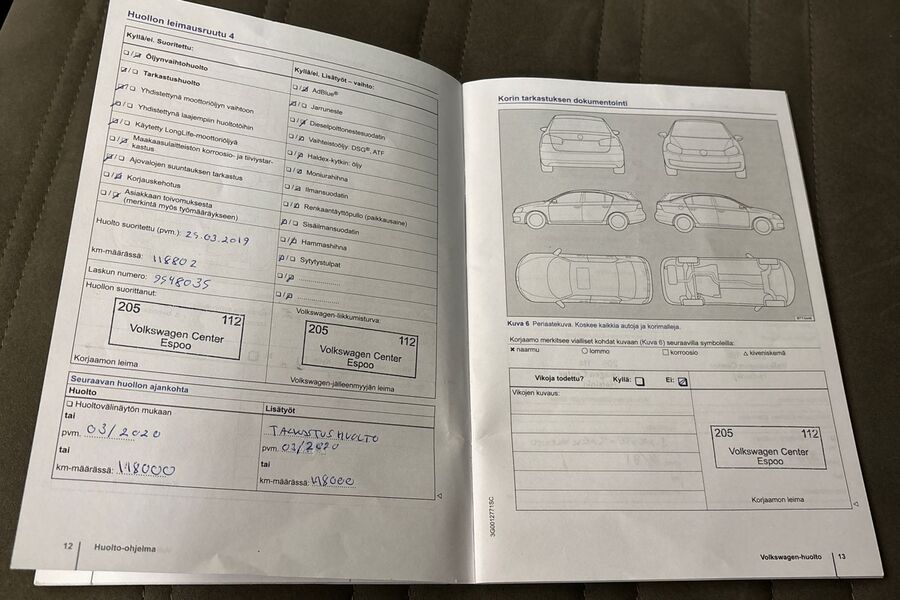 Huollon leimausruutu 4
Kyllä/ei. Suoritettu:
Öljynvaihtohuolto
Tarkastushuolto
Yhdistettynä moottoriöljyn vaihtoon
Yhdistettynä laajempiin huoltotoihin
Käytetty LongLife-moottoriöljyä
Maakaasulaitteiston korroosio- ja tiiviystar-
kastus
Ajovalojen suuntauksen tarkastus
Korjauskehotus
Asiakkaan toivomuksesta
(merkintä myös työmääräykseen)
Huolto suoritettu (pvm.): 25.03.2019
km-määrässä: 118802
Laskun numero: 9548035
Huollon suorittanut:
205
112
Volkswagen Center
Espoo
Korjaamon leima
Kyllä/ei. Lisätyöt – vaihto:
AdBlue®
Jarruneste
Dieselpolttonestesuodatin
Vaihteistoöljy: DSG®, ATF
Haldex-kytkin: öljy
Moniurahihna
Ilmansuodatin
Renkaantäyttöpullo (paikkausaine)
Sisäilmansuodatin
Hammashihna
Sytytystulpat
Volkswagen-liikkumisturva:
205
112
Volkswagen Center
Espoo
Volkswagen-jälleenmyyjän leima
Seuraavan huollon ajankohta
Huolto
Huoltovälinäytön mukaan
tai
pvm. 03/2020
tai
km-määrässä: 148000
Lisätyöt
TARKASTUSHUOLTO
pvm. 03/2020
tai
km-määrässä: 148000
12 Huolto-ohjelma
Korin tarkastuksen dokumentointi
Kuva 6 Periaatekuva. Koskee kaikkia autoja ja korimalleja.
Korjaamo merkitsee vialliset kohdat kuvaan (Kuva 6) seuraavilla symboleilla:
naarmu lommo korroosio kiveniskemä
Vikoja todettu? Kyllä: Ei:
Vikojen kuvaus:
205
112
Volkswagen Center
Espoo
Korjaamon leima
3G0012771SC
Volkswagen-huolto 13